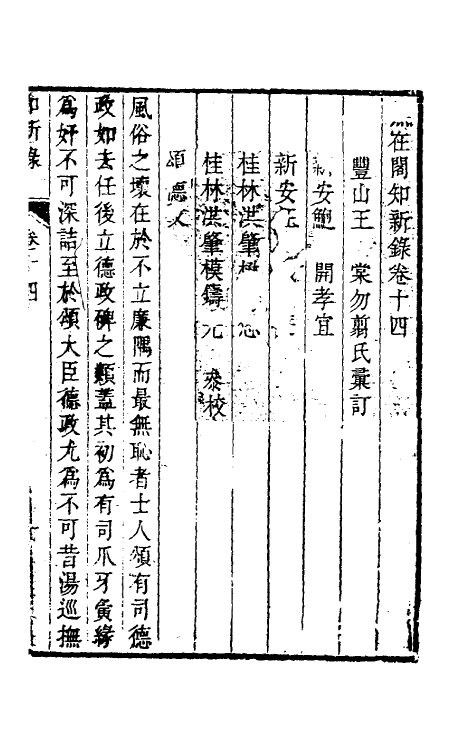 在閣知新錄卷十四
豐山王　棠勿翦氏彙訂
安鮑　開孝宜
新安
桂林洪肇楙
桂林洪肇模鑄元　叅校
頌德
風俗之壞在於不立廉隅而最無恥者士人頌有司德
政如去任後立德政碑之類蓋其初爲有司爪牙夤緣
爲奸不可深詰至於頌大臣德政尤爲不可昔湯巡撫
知新錄　卷十四